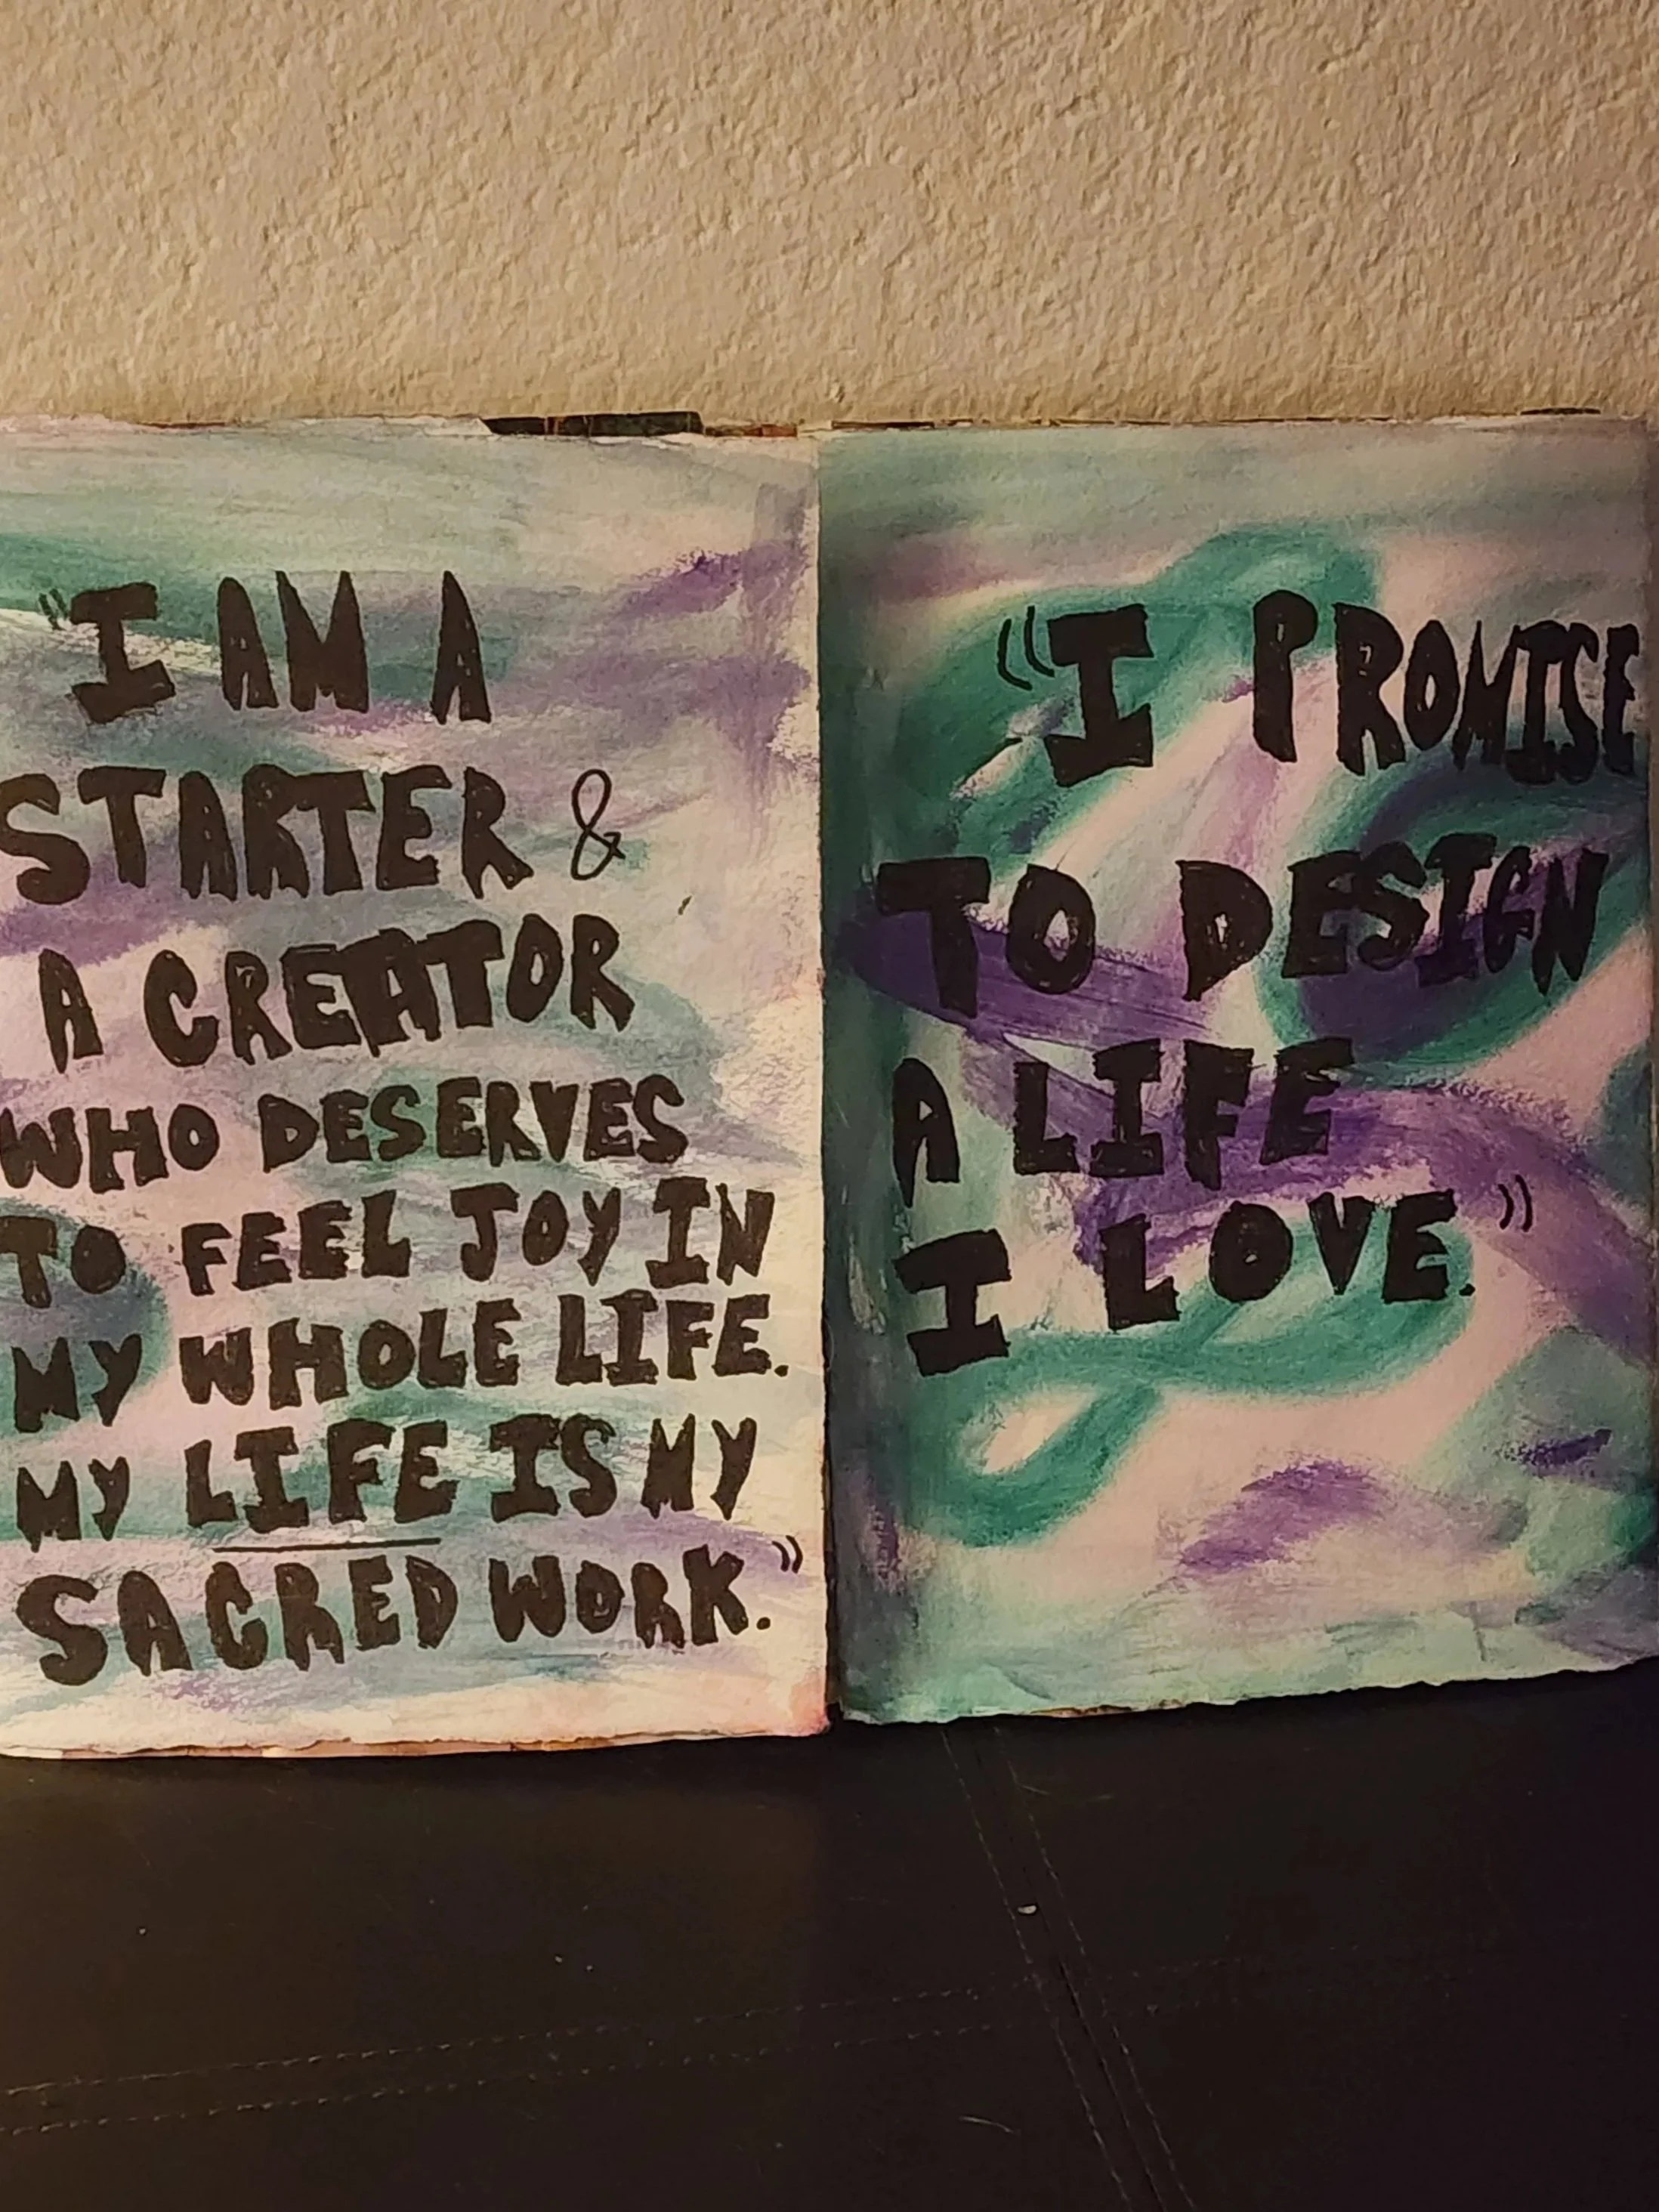 "I AM A
STARTER &
A CREATOR
WHO DESERVES
TO FEEL JOY IN
MY WHOLE LIFE.
MY LIFE IS MY
SACRED WORK."
"I PROMISE
TO DESIGN
A LIFE
I LOVE."